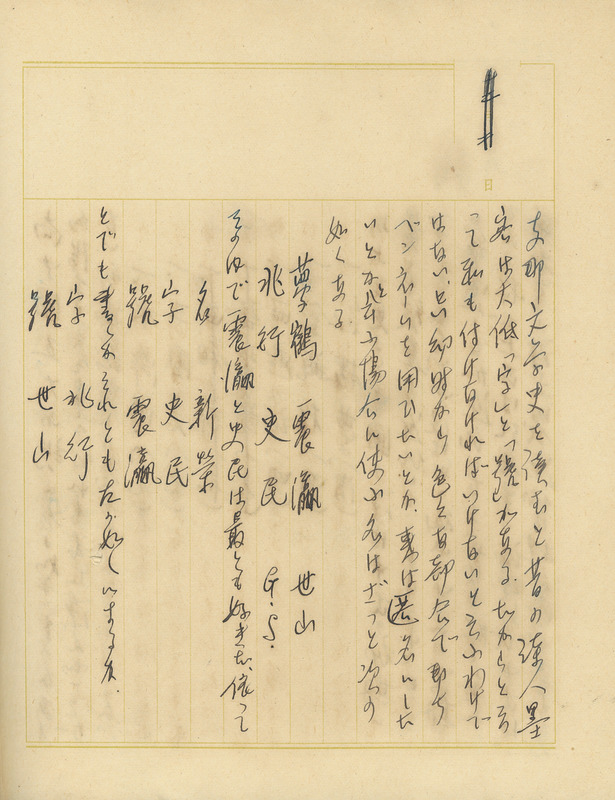 日
支那文学史を讀むと昔の詩人墨
客は大低「字」と「號」がある.だからと云
って私も付けなければいけないと云ふわけで
はない.只幼時から色々な都合で即ち
ペンネームを用ひたいとか,裏は匿名にした
いとかと云ふ場合に使ふ名はざっと次の
如くある.
夢鶴 震瀛 世山
兆行 史民 G.S.
その内で震瀛と史民は最とも好きだ,依って
名 新榮
字 史民
號 震瀛
とでも書くかそれとも左の如くにするか.
字 兆行
號 世山